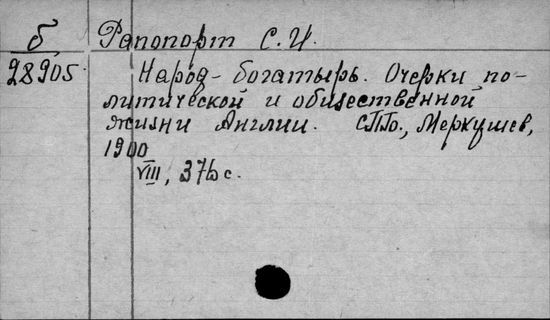 б Рапопорт С. И.
28905. Народ-богатырь. Очерки по-
литической и общественной
жизни Англии. СПб., Меркушев,
1900
VIII, 376 с.